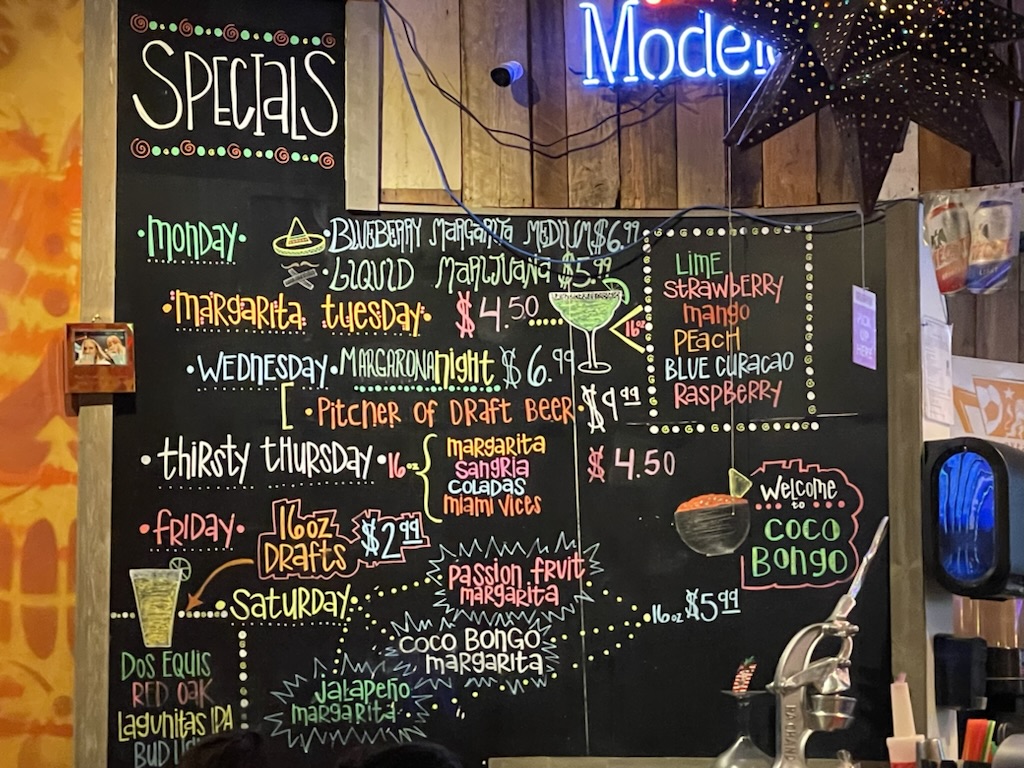 SPECIALS
Model
•MONDAY•
•BLUEBERRY MARGARITA MEDIUM $6.99
•LIQUID MARIJUANA $5.99
•MARGARITA TUESDAY• $4.50
16oz
LIME
STRAWBERRY
MANGO
PEACH
BLUE CURACAO
RASPBERRY
•WEDNESDAY• MARGARONA NIGHT $6.99
•PITCHER OF DRAFT BEER• $9.99
•THIRSTY THURSDAY• 16oz
MARGARITA
SANGRIA
COLADAS
MIAMI VICES
$4.50
•FRIDAY•
16oz
DRAFTS $2.99
WELCOME
to
COCO
BONGO
•SATURDAY•
PASSION FRUIT
MARGARITA
COCO BONGO
MARGARITA
JALAPEÑO
MARGARITA
16oz $5.99
DOS EQUIS
RED OAK
LAGUNITAS IPA
BUD
PICK
UP
HERE